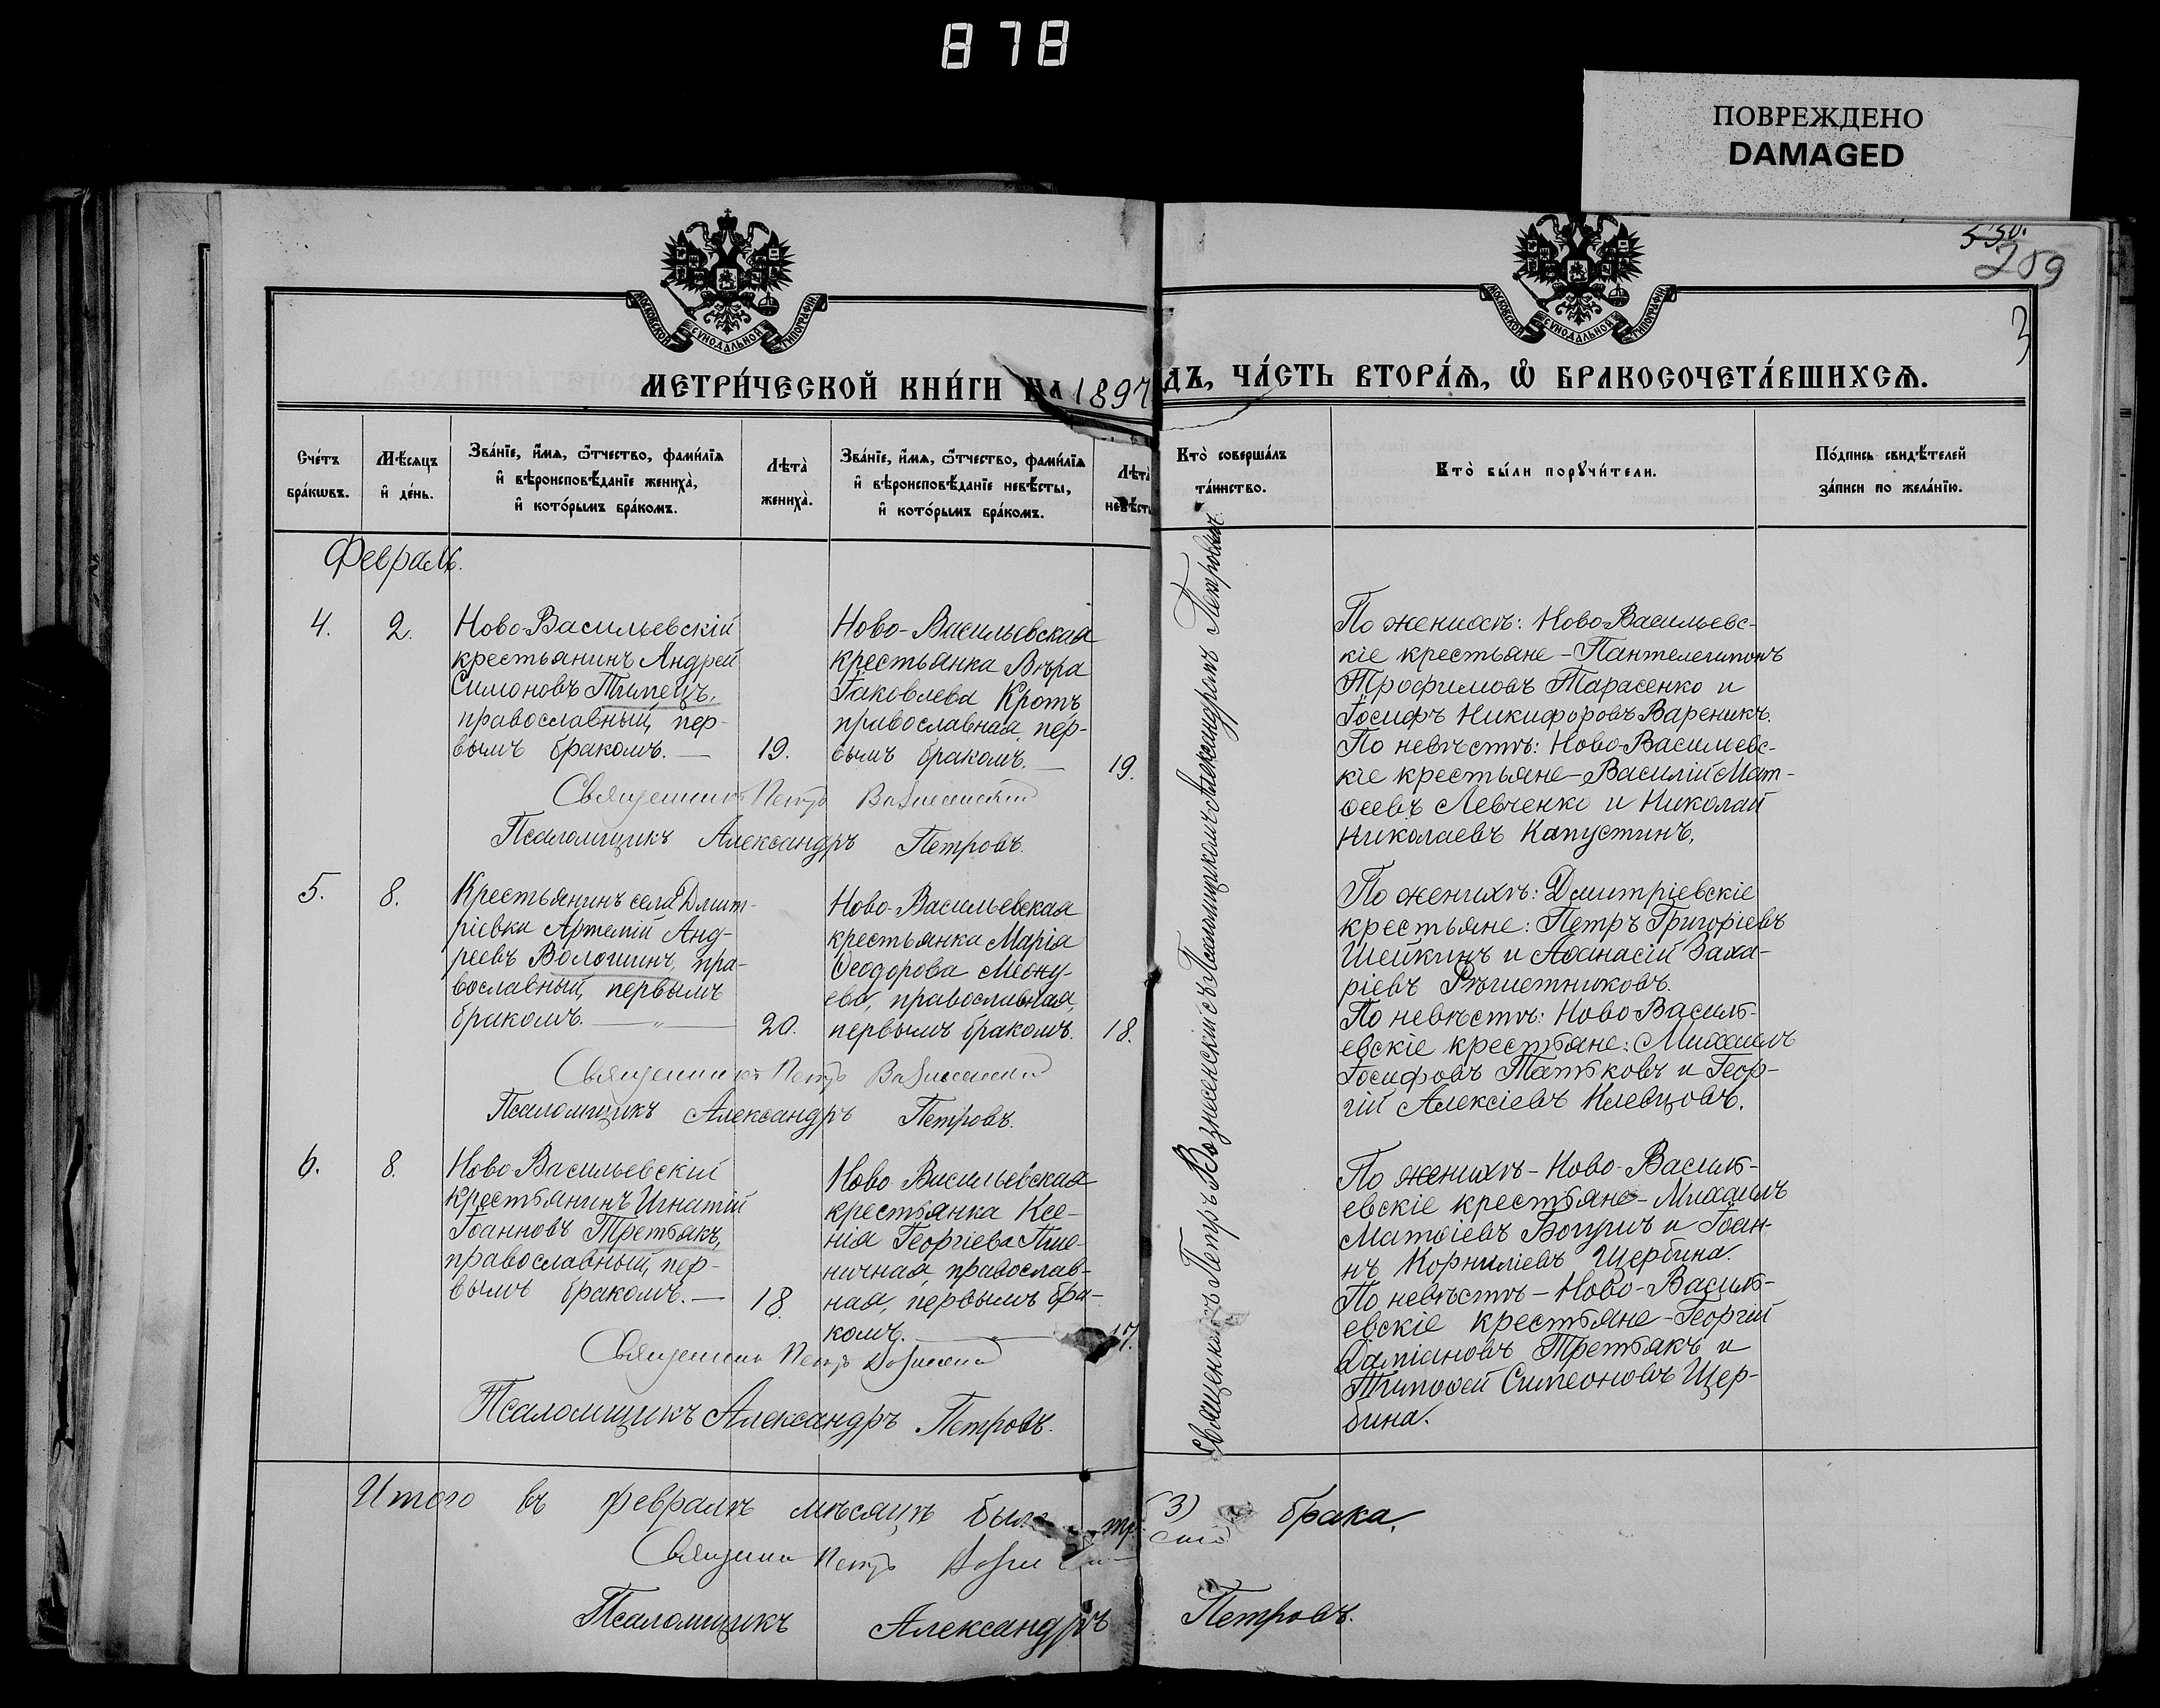 878
ПОВРЕЖДЕНО
DAMAGED
550.
209
3
МОСКОВСКОЙ СѴНОДАЛЬНОЙ ТИПОГРАФІИ
МОСКОВСКОЙ СѴНОДАЛЬНОЙ ТИПОГРАФІИ
МЕТРИ́ЧЕСКОЙ КНИ́ГИ НА 1897 ДЪ, ЧА́СТЬ ВТОРА́Ѧ, Ѽ БРАКОСОЧЕТА́ВШИХСѦ.
Сче́тъ бра́кѡвъ.
Мѣ́сяцъ и҆ де́нь.
Зва́нїе, и҆́мѧ, ѻ҆́тчество, фами́лїѧ
и҆ вѣроисповѣ́данїе жениха̀,
и҆ кото́рымъ бра́комъ.
Лѣта̀ жениха̀.
Зва́нїе, и҆́мѧ, ѻ҆́тчество, фами́лїѧ
и҆ вѣроисповѣ́данїе невѣ́сты,
и҆ кото́рымъ бра́комъ.
Лѣта̀ невѣ́сты
Кто̀ соверша́лъ та́инство.
Кто̀ бы́ли порꙋчи́тели.
По́дпись свидѣ́телей за́писи по жела́нїю.
Февраль.
4.
2.
Ново-Васильевскій
крестьянинъ Андрей
Симоновъ Тимецъ,
православный, пер-
вымъ бракомъ. —
19.
Ново-Васильевская
крестьянка Вѣра
Іаковлева Кротъ
православная, пер-
вымъ бракомъ. —
19.
По женихѣ: Ново-Васильевс-
кіе крестьяне - Пантелеимонъ
Трофимовъ Тарасенко и
Іосифъ Никифоровъ Вареникъ.
По невѣстѣ: Ново-Васильевс-
кіе крестьяне - Василій Мат-
ѳеевъ Левченко и Николай
Николаевъ Капустинъ.
Священникъ Петръ Вознесенскій
Псаломщикъ Александръ Петровъ.
5.
8.
Крестьянинъ села Дмит-
ріевки Артемій Анд-
реевъ Волошинъ, пра-
вославный, первымъ
бракомъ. — „ —
20.
Ново-Васильевская
крестьянка Марія
Ѳеодорова
православная,
первымъ бракомъ.
18.
По женихѣ: Дмитріевскіе
крестьяне: Петръ Григоріевъ
Шейкинъ и Аѳанасій Заха-
ріевъ Рѣшетниковъ.
По невѣстѣ: Ново Василь-
евскіе крестьяне: Михаилъ
Іосифовъ Татьковъ и Геор-
гій Алексіевъ Клевцовъ.
Священникъ Петръ Вознесенскій
Псаломщикъ Александръ Петровъ.
6.
8.
Ново Васильевскій
крестьянинъ Игнатій
Іоанновъ Третьякъ,
православный, пер-
вымъ бракомъ. —
18.
Ново Васильевская
крестьянка Ксе-
нія Георгіева Пше-
ничная, православ-
ная, первымъ бра-
комъ. —
17.
По женихѣ - Ново-Василь-
евскіе крестьяне - Михаилъ
Матѳіевъ Богушъ и Іоан-
нъ Корниліевъ Щербина.
По невѣстѣ - Ново-Василь-
евскіе крестьяне - Георгій
Даміановъ Третьякъ и
Тимоѳей Симеоновъ Щер-
бина.
Священникъ Петръ Вознесенскій
Псаломщикъ Александръ Петровъ.
Священникъ Петръ Вознесенскій съ Псаломщикомъ Александромъ Петровымъ.
Итого въ февралѣ мѣсяцѣ было тр (3) брака.
Священник Петръ
Псаломщикъ Александръ Петровъ.